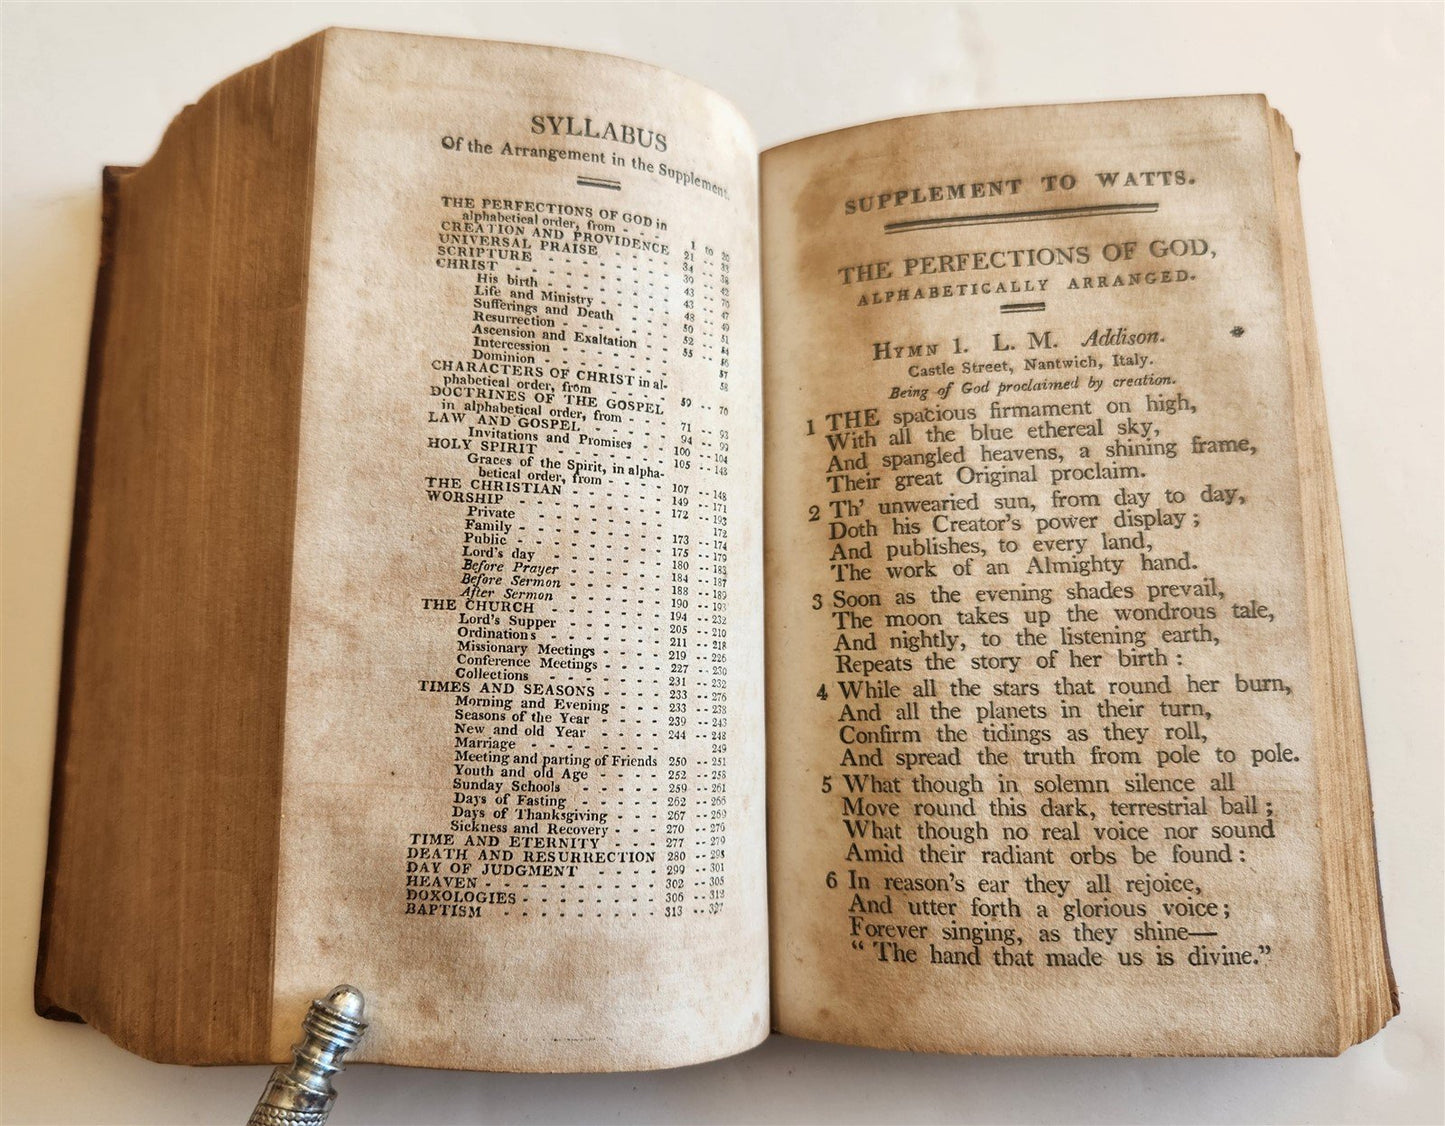 SYLLABUS
Of the Arrangement in the Supplement.
THE PERFECTIONS OF GOD in
alphabetical order, from - - - 1 to 20
CREATION AND PROVIDENCE 21 - - 33
UNIVERSAL PRAISE - - - - - 34 - - 38
SCRIPTURE - - - - - - - - 39 - - 42
CHRIST - - - - - - - - 43 - - 70
His birth - - - - - - - 43 - - 47
Life and Ministry - - - - 48 - - 49
Sufferings and Death - - - 50 - - 51
Resurrection - - - - - - 52 - - 54
Ascension and Exaltation - - 55 - - 56
Intercession - - - - - - 57
Dominion - - - - - - - 58
CHARACTERS OF CHRIST in al-
phabetical order, from - - - - 59 - - 70
DOCTRINES OF THE GOSPEL
in alphabetical order, from - - - 71 - - 93
LAW AND GOSPEL - - - - - 94 - - 99
Invitations and Promises - - 100 - - 104
HOLY SPIRIT - - - - - - - 105 - - 148
Graces of the Spirit, in alpha-
betical order, from - - - - 107 - - 148
THE CHRISTIAN - - - - - - 149 - - 171
WORSHIP - - - - - - - - - 172 - - 193
Private - - - - - - - - 172
Family - - - - - - - - 173 - - 174
Public - - - - - - - - 175 - - 179
Lord's day - - - - - - 180 - - 183
Before Prayer - - - - - 184 - - 187
Before Sermon - - - - - 188 - - 189
After Sermon - - - - - - 190 - - 193
THE CHURCH - - - - - - - 194 - - 232
Lord's Supper - - - - - 205 - - 210
Ordinations - - - - - - 211 - - 218
Missionary Meetings - - - - 219 - - 226
Conference Meetings - - - - 227 - - 230
Collections - - - - - - 231 - - 232
TIMES AND SEASONS - - - - 233 - - 276
Morning and Evening - - - 233 - - 238
Seasons of the Year - - - - 239 - - 243
New and old Year - - - - 244 - - 248
Marriage - - - - - - - 249
Meeting and parting of Friends 250 - - 251
Youth and old Age - - - - 252 - - 258
Sunday Schools - - - - - 259 - - 261
Days of Fasting - - - - - 262 - - 266
Days of Thanksgiving - - - 267 - - 269
Sickness and Recovery - - - 270 - - 276
TIME AND ETERNITY - - - - 277 - - 279
DEATH AND RESURRECTION 280 - - 298
DAY OF JUDGMENT - - - - - 299 - - 301
HEAVEN - - - - - - - - - 302 - - 305
DOXOLOGIES - - - - - - - 306 - - 312
BAPTISM - - - - - - - - 313 - -
SUPPLEMENT TO WATTS.
THE PERFECTIONS OF GOD,
ALPHABETICALLY ARRANGED.
HYMN 1. L. M. Addison. *
Castle Street, Nantwich, Italy.
Being of God proclaimed by creation.
1 THE spacious firmament on high,
With all the blue ethereal sky,
And spangled heavens, a shining frame,
Their great Original proclaim.
2 Th' unwearied sun, from day to day,
Doth his Creator's power display;
And publishes, to every land,
The work of an Almighty hand.
3 Soon as the evening shades prevail,
The moon takes up the wondrous tale,
And nightly, to the listening earth,
Repeats the story of her birth:
4 While all the stars that round her burn,
And all the planets in their turn,
Confirm the tidings as they roll,
And spread the truth from pole to pole.
5 What though in solemn silence all
Move round this dark, terrestrial ball;
What though no real voice nor sound
Amid their radiant orbs be found:
6 In reason's ear they all rejoice,
And utter forth a glorious voice;
Forever singing, as they shine—
“The hand that made us is divine.”